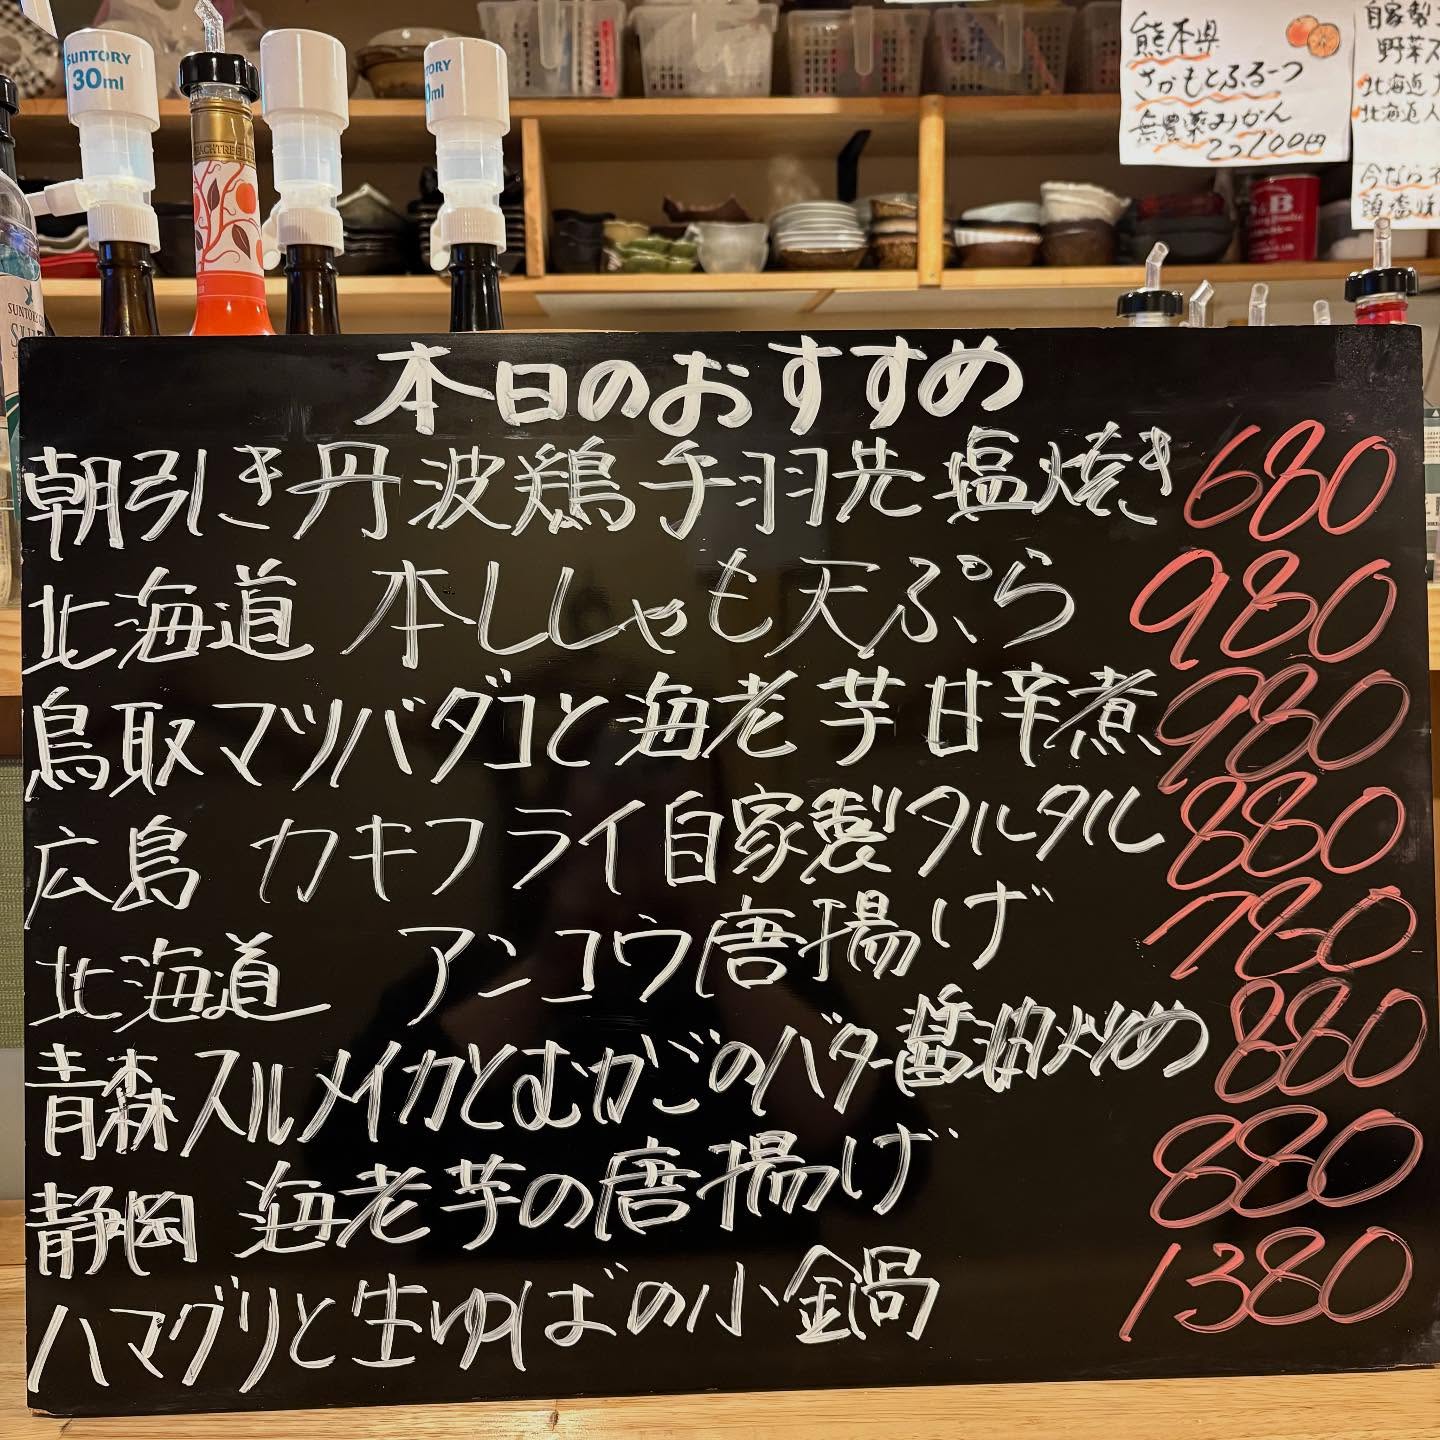 SUNTORY
30ml
熊本県
さかもとふるーつ
無農薬みかん
2つ700円
自家製
野菜ス
北海道
北海道人
今なら
SUNTORY
本日のおすすめ
朝引き丹波鶏手羽先塩焼き 680
北海道 本ししゃも天ぷら 980
鳥取マツバダコと海老芋甘辛煮 980
広島 カキフライ自家製タルタル 880
北海道 アンコウ唐揚げ 780
青森スルメイカとむかごのバター醤油炒め 880
静岡 海老芋の唐揚げ 880
ハマグリと生ゆばの小鍋 1380